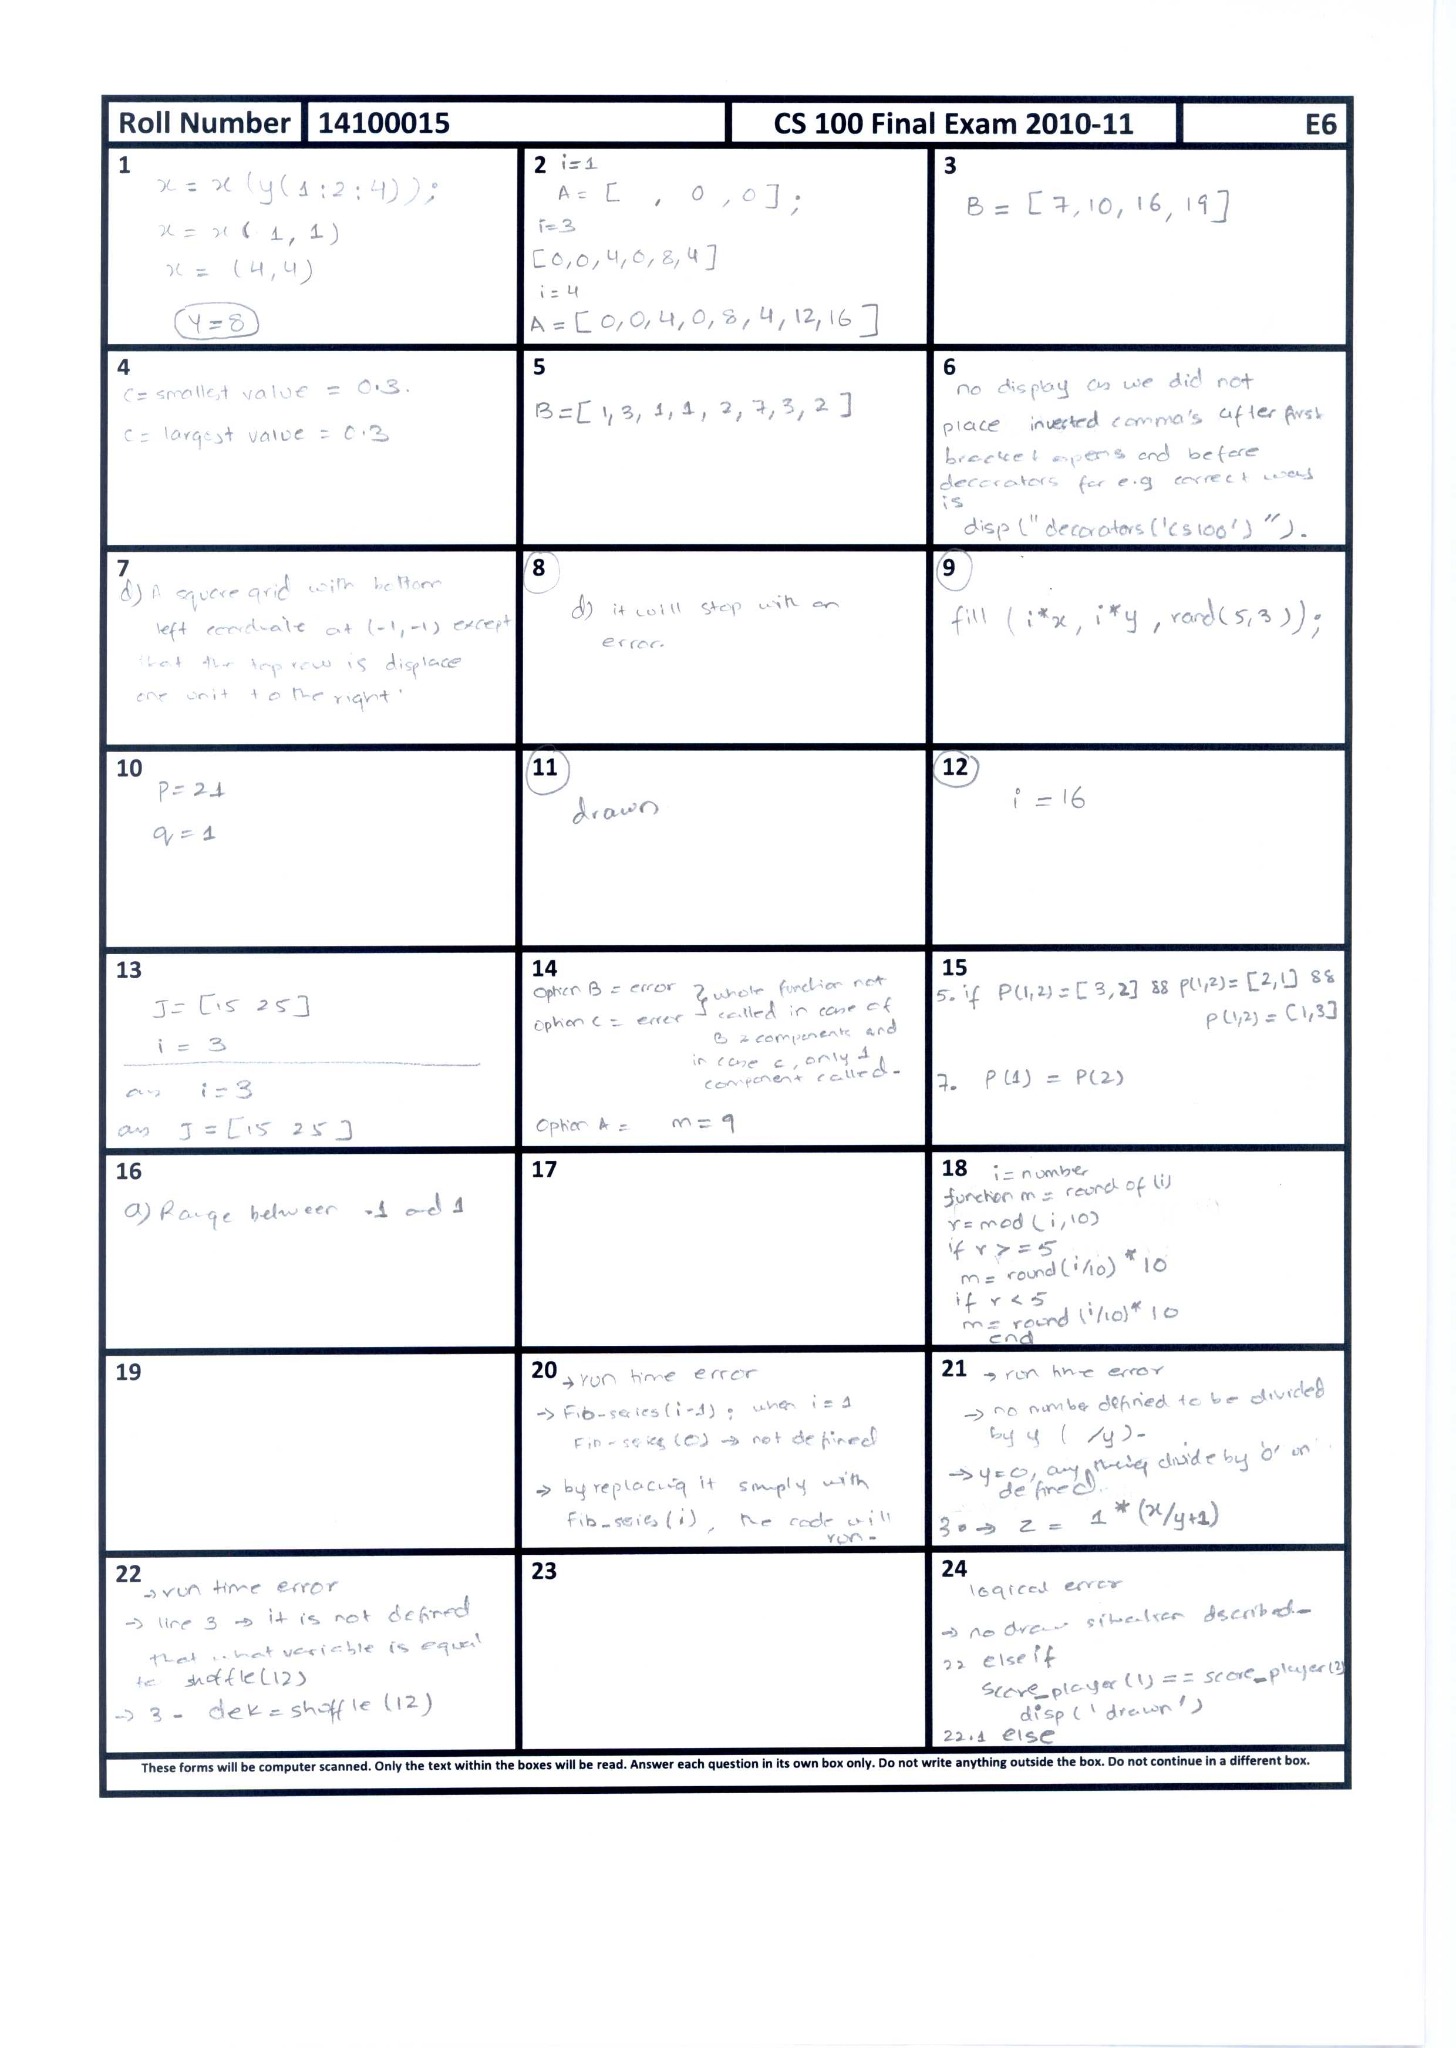 Roll Number 14100015 CS 100 Final Exam 2010-11 E6
1
x = x (y(1:2:4));
x = x( 1, 1)
x = (4,4)
Y=8
2 i=1
A = [ , 0 , 0 ] ;
i=3
[0,0,4,0,8,4]
i=4
A = [0,0,4,0,8,4,12,16]
3
B = [7,10,16,19]
4
C= smallest value = 0.3.
C= largest value = 0.3
5
B=[1,3,1,1,2,7,3,2]
6
no display as we did not
place inverted comma's after first
bracket opens and before
decorators for e.g correct way
is
disp ("decorators('CS100')").
7
d) A square grid with bottom
left cordinate at (-1,-1) except
that the top row is displace
one unit to the right.
8
d) it will stop with an
error.
9
fill (i*x, i*y, rand(5,3));
10
P= 21
q = 1
11
drawn
12
i = 16
13
J= [15 25]
i = 3
ans i=3
ans J = [15 25]
14
Option B = error } whole function not
Option C = error called in case of
B 2 components and
in case c, only 1
component called.
Option A = m = 9
15
5. if P(1,2)=[3,2] && P(1,2)=[2,1] &&
P(1,2) = [1,3]
7. P(1) = P(2)
16
a) Range between -1 and 1
17
18 i=number
function m = round of (i)
r=mod(i,10)
if r >=5
m= round(i/10) * 10
if r <5
m= round (i/10)* 10
end
19
20 → run time error
→ Fib-series(i-1); when i=1
Fib-series(0) → not defined
→ by replacing it simply with
Fib_series(i), the code will
run-
21 → run time error
→ no number defined to be divided
by y ( /y)-
→ y=0, any thing divide by '0' un
defined.
3 → z = 1 * (x/y+1)
22
→ run time error
→ line 3 → it is not defined
that what variable is equal
to shoffle(12)
→ 3 - dek = shoffle (12)
23
24
logical error
→ no draw situation dscribed-
22 elseif
score_player(1) == score_player(2)
disp('drawn')
22.1 else
These forms will be computer scanned. Only the text within the boxes will be read. Answer each question in its own box only. Do not write anything outside the box. Do not continue in a different box.